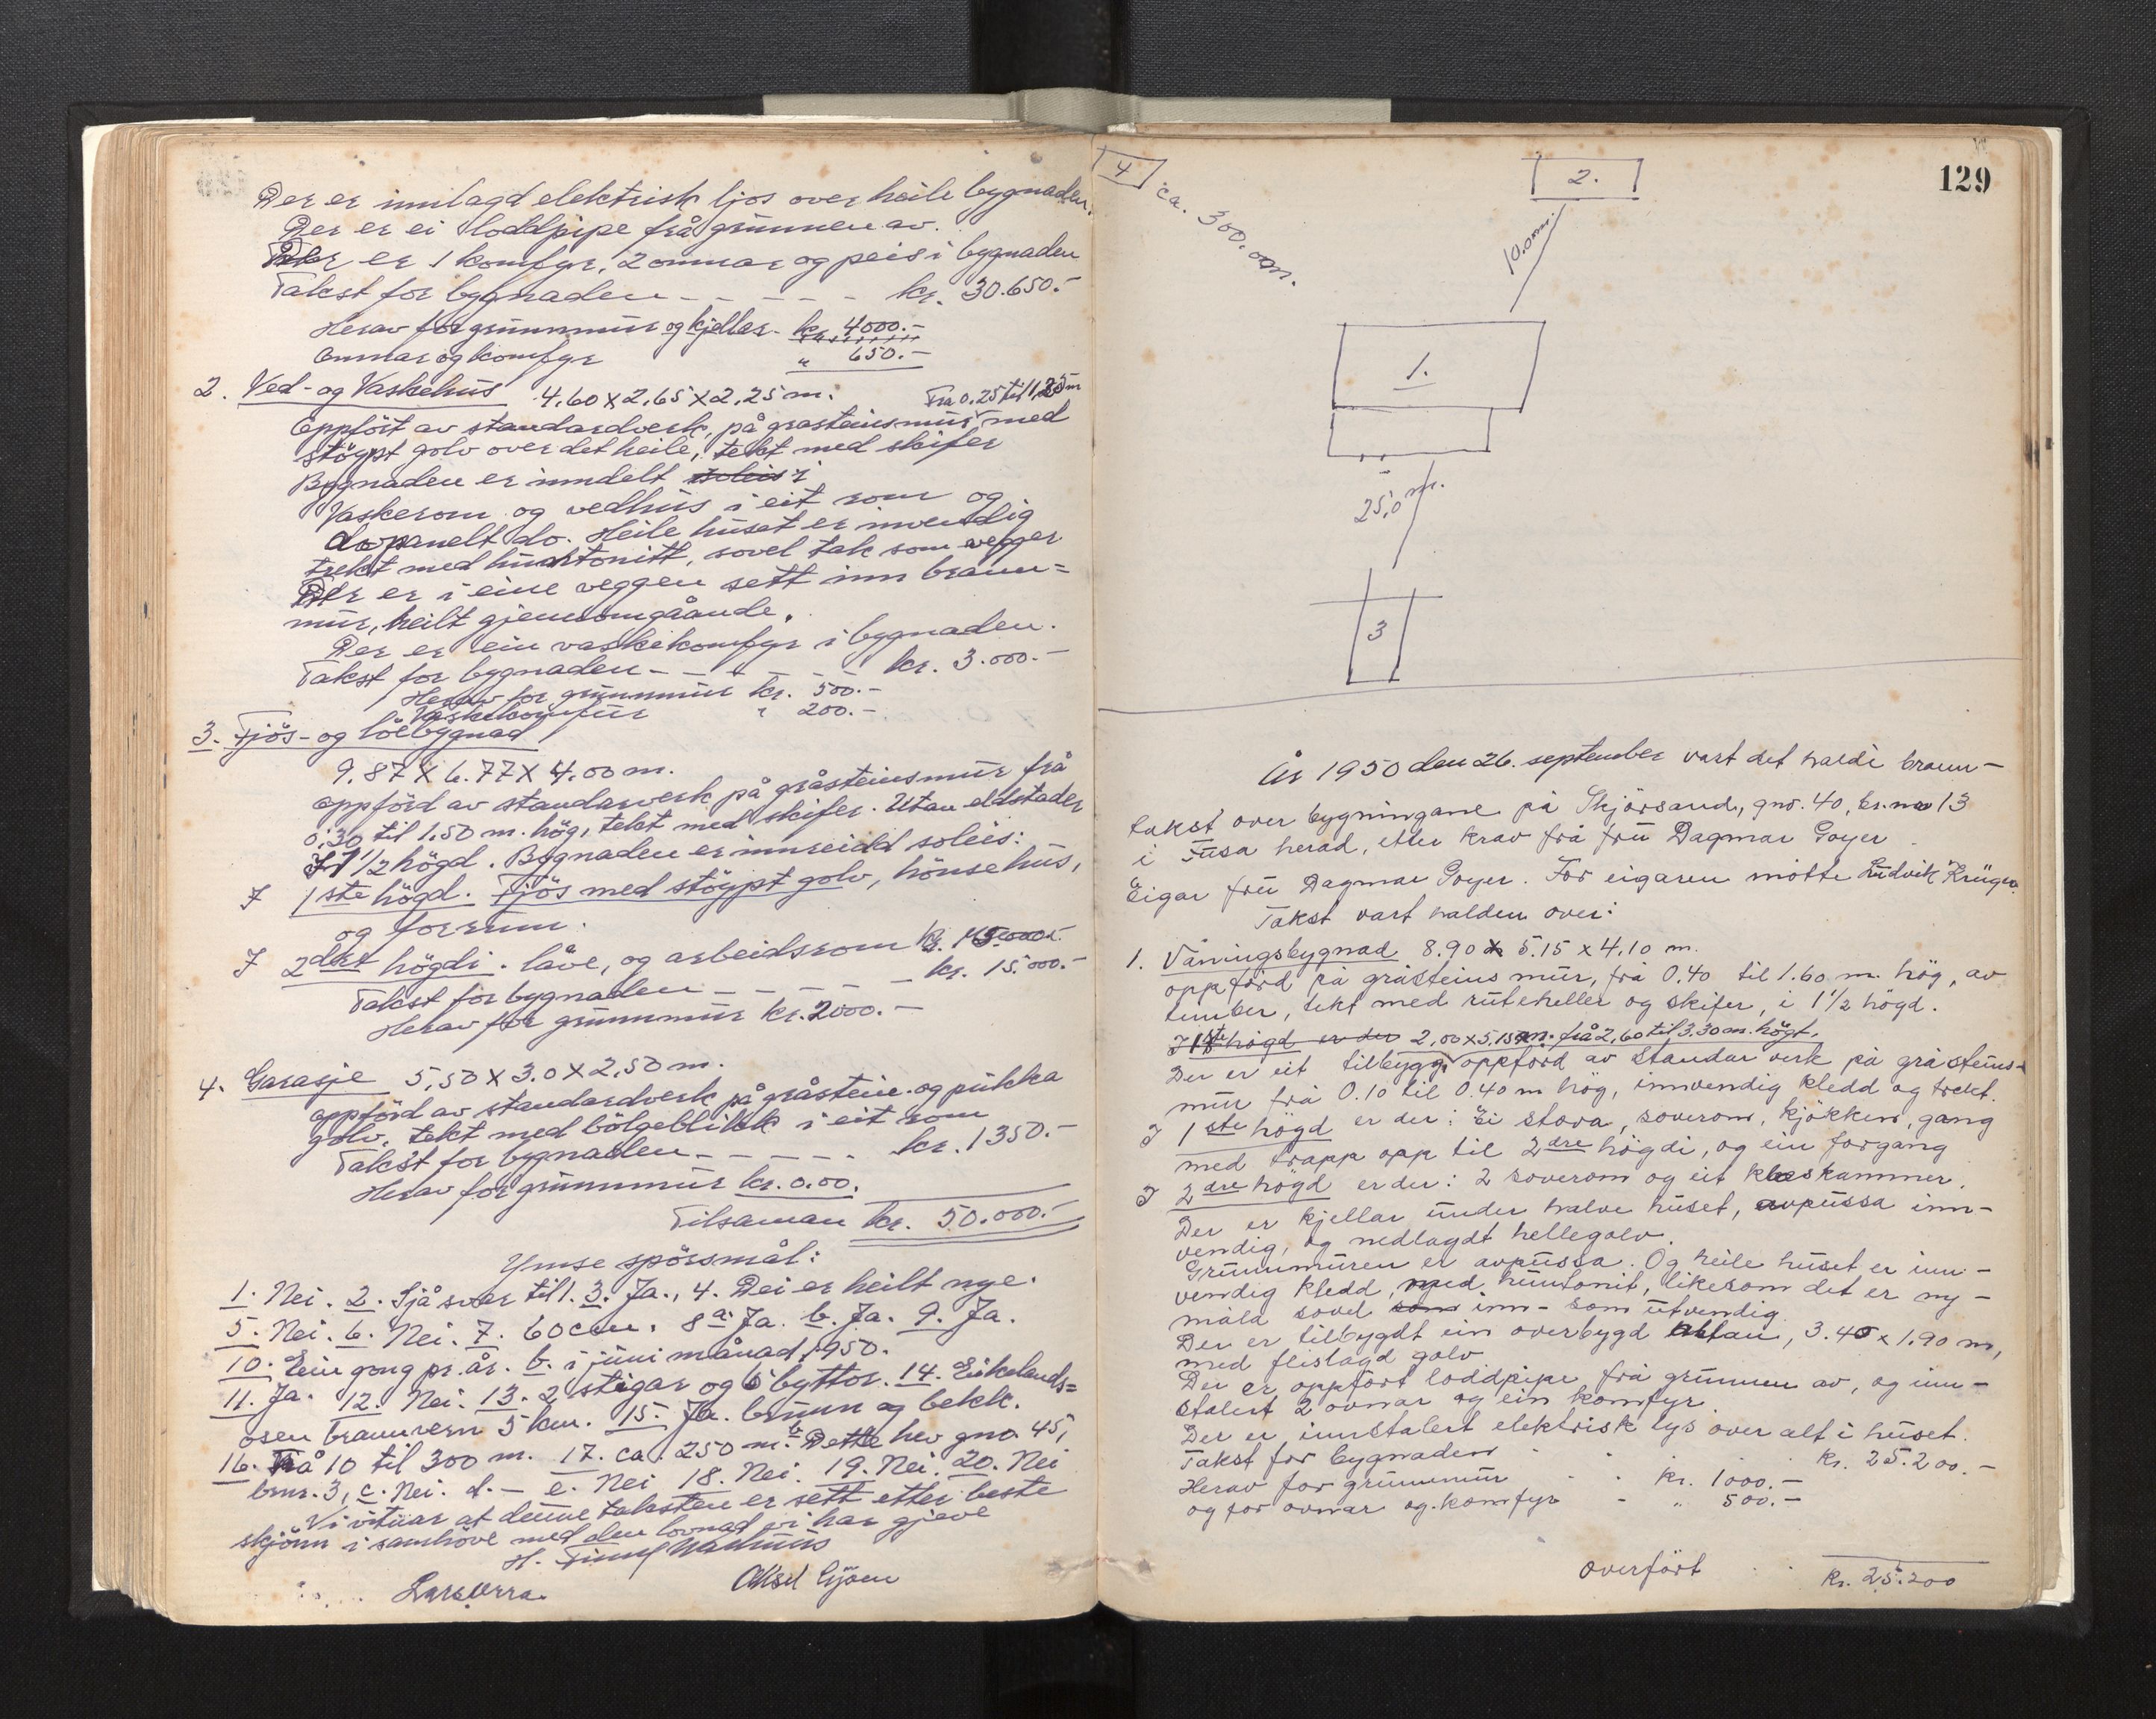 Der er innlagd elektrisk ljos over heile bygnaden.
Der er ei loddpipe frå grunnen av.
Der er 1 komfyr, 2 omnar og peis i bygnaden
Takst for bygnaden - - - - - kr. 30.650.-
Herav for grunnmur og kjellar - kr 4000.-
Omnar og komfyr " 650.-
2. Ved- og Vaskehus 4,60 x 2,65 x 2,25 m. Fra 0.25 til 1,25 m
Oppfört av standardverk, på grasteinsmur med
stöypt golv over det heile, tekt med skifer
Bygnaden er inndelt soleis i
Vaskerom og vedhus i eit rom og
do. Heile huset er invendig
trekt med huntonitt, sovel tak som vegger
Der er i eine veggen sett inn brann=
mur, heilt gjennomgåande.
Der er ein vaskekomfyr i bygnaden.
Takst for bygnaden - - - - - kr. 3.000.-
Herav for grunnmur kr. 500.-
Vaskekomfur " 200.-
3. Fjös- og löebygnad
9.87 x 6.77 x 4.00 m.
Oppförd av standarverk på gråsteinsmur frå
0.30 til 1.50 m. hög, tekt med skifer. Utan eldstader
I 1 1/2 högd. Bygnaden er innreidd soleis:
I 1ste högd. Fjös med stöypt golv, hönsehus,
og forrum.
I 2dre högdi. låve, og arbeidsrom kr. 15.000.-
Takst for bygnaden - - - - - kr. 15.000.-
Herav for grunnmur kr. 2000.-
4. Garasje 5,50 x 3.0 x 2,50 m.
Oppförd av standardverk på gråstein og pukka
golv. tekt med bölgeblikk i eit rom
Takst for bygnaden - - - - - kr. 1350.-
Herav for grunnmur kr. 0.00.
Tilsaman kr. 50.000.-
Ymse spörsmål:
1. Nei. 2. Sjå svar til 1. 3. Ja., 4. Dei er heilt nye.
5. Nei. 6. Nei. 7. 60 cm. 8 a. Ja. b. Ja. 9. Ja.
10. Ein gong pr. år. b. i juni månad 1950.
11. Ja. 12. Nei. 13. 2 stigar og 6 byttor. 14. Eikelands=
osen brannvern 5 km. 15. Ja. brunn og bekk.
16. Frå 10 til 300 m. 17. ca. 250 m. b Dette hev gno. 45,
bnr. 3, c. Nei. d. - e. Nei 18. Nei. 19. Nei. 20. Nei
Vi vitnar at denne taksten er sett etter beste
skjönn i samhöve med den lovnad vi har gjeve
H. Finn
Lars Aksel
4
ca. 300.00 m.
2.
129
10.0 m.
1.
25,0 m.
3
År 1950 den 26. september vart det haldi brann-
takst over bygningane på Skjörsand, gno. 40, br. no 13
i Fusa herad, etter krav frå fru Dagmar Goyer.
Eigar fru Dagmar Goyer. For eigaren mötte Ludvik Krüger.
Takst vart halden over:
1. Våningsbygnad 8.90 x 5.15 x 4.10 m.
oppförd på gråsteins mur, frå 0.40 til 1.60 m. hög, av
tember, tekt med rutehellar og skifer, i 1 1/2 högd.
I 1ste högd er der 2,00 x 5,15 m. frå 2,60 til 3.30 m. högt.
Der er eit tilbygg oppförd av standar verk på gråsteins-
mur frå 0.10 til 0.40 m hög, innvendig kledd og trekt.
I 1ste högd er der: Ei stova, soverom, kjökken, gang
med trapp opp til 2dre högdi, og ein forgang
I 2dre högd er der: 2 soverom og eit kleskammer.
Der er kjellar under halve huset, avpussa inn-
vendig, og nedlagdt hellegolv.
Grunnmuren er avpussa. Og heile huset er inn-
vendig kledd, med huntonit, likesom det er ny-
måld sovel som inn- som utvendig.
Der er tilbygdt ein overbygd altan, 3.40 x 1.90 m,
med flislagd golv
Der er oppfört loddpipe frå grunnen av, og inn-
stalert 2 ovnar og ein komfyr.
Der er innstalert elektrisk lys over alt i huset.
Takst for bygnaden - - - kr. 25.200.-
Herav for grunnmur - - kr. 1000.-
og for ovnar og komfyr - " 500.-
Overfört - - kr. 25.200